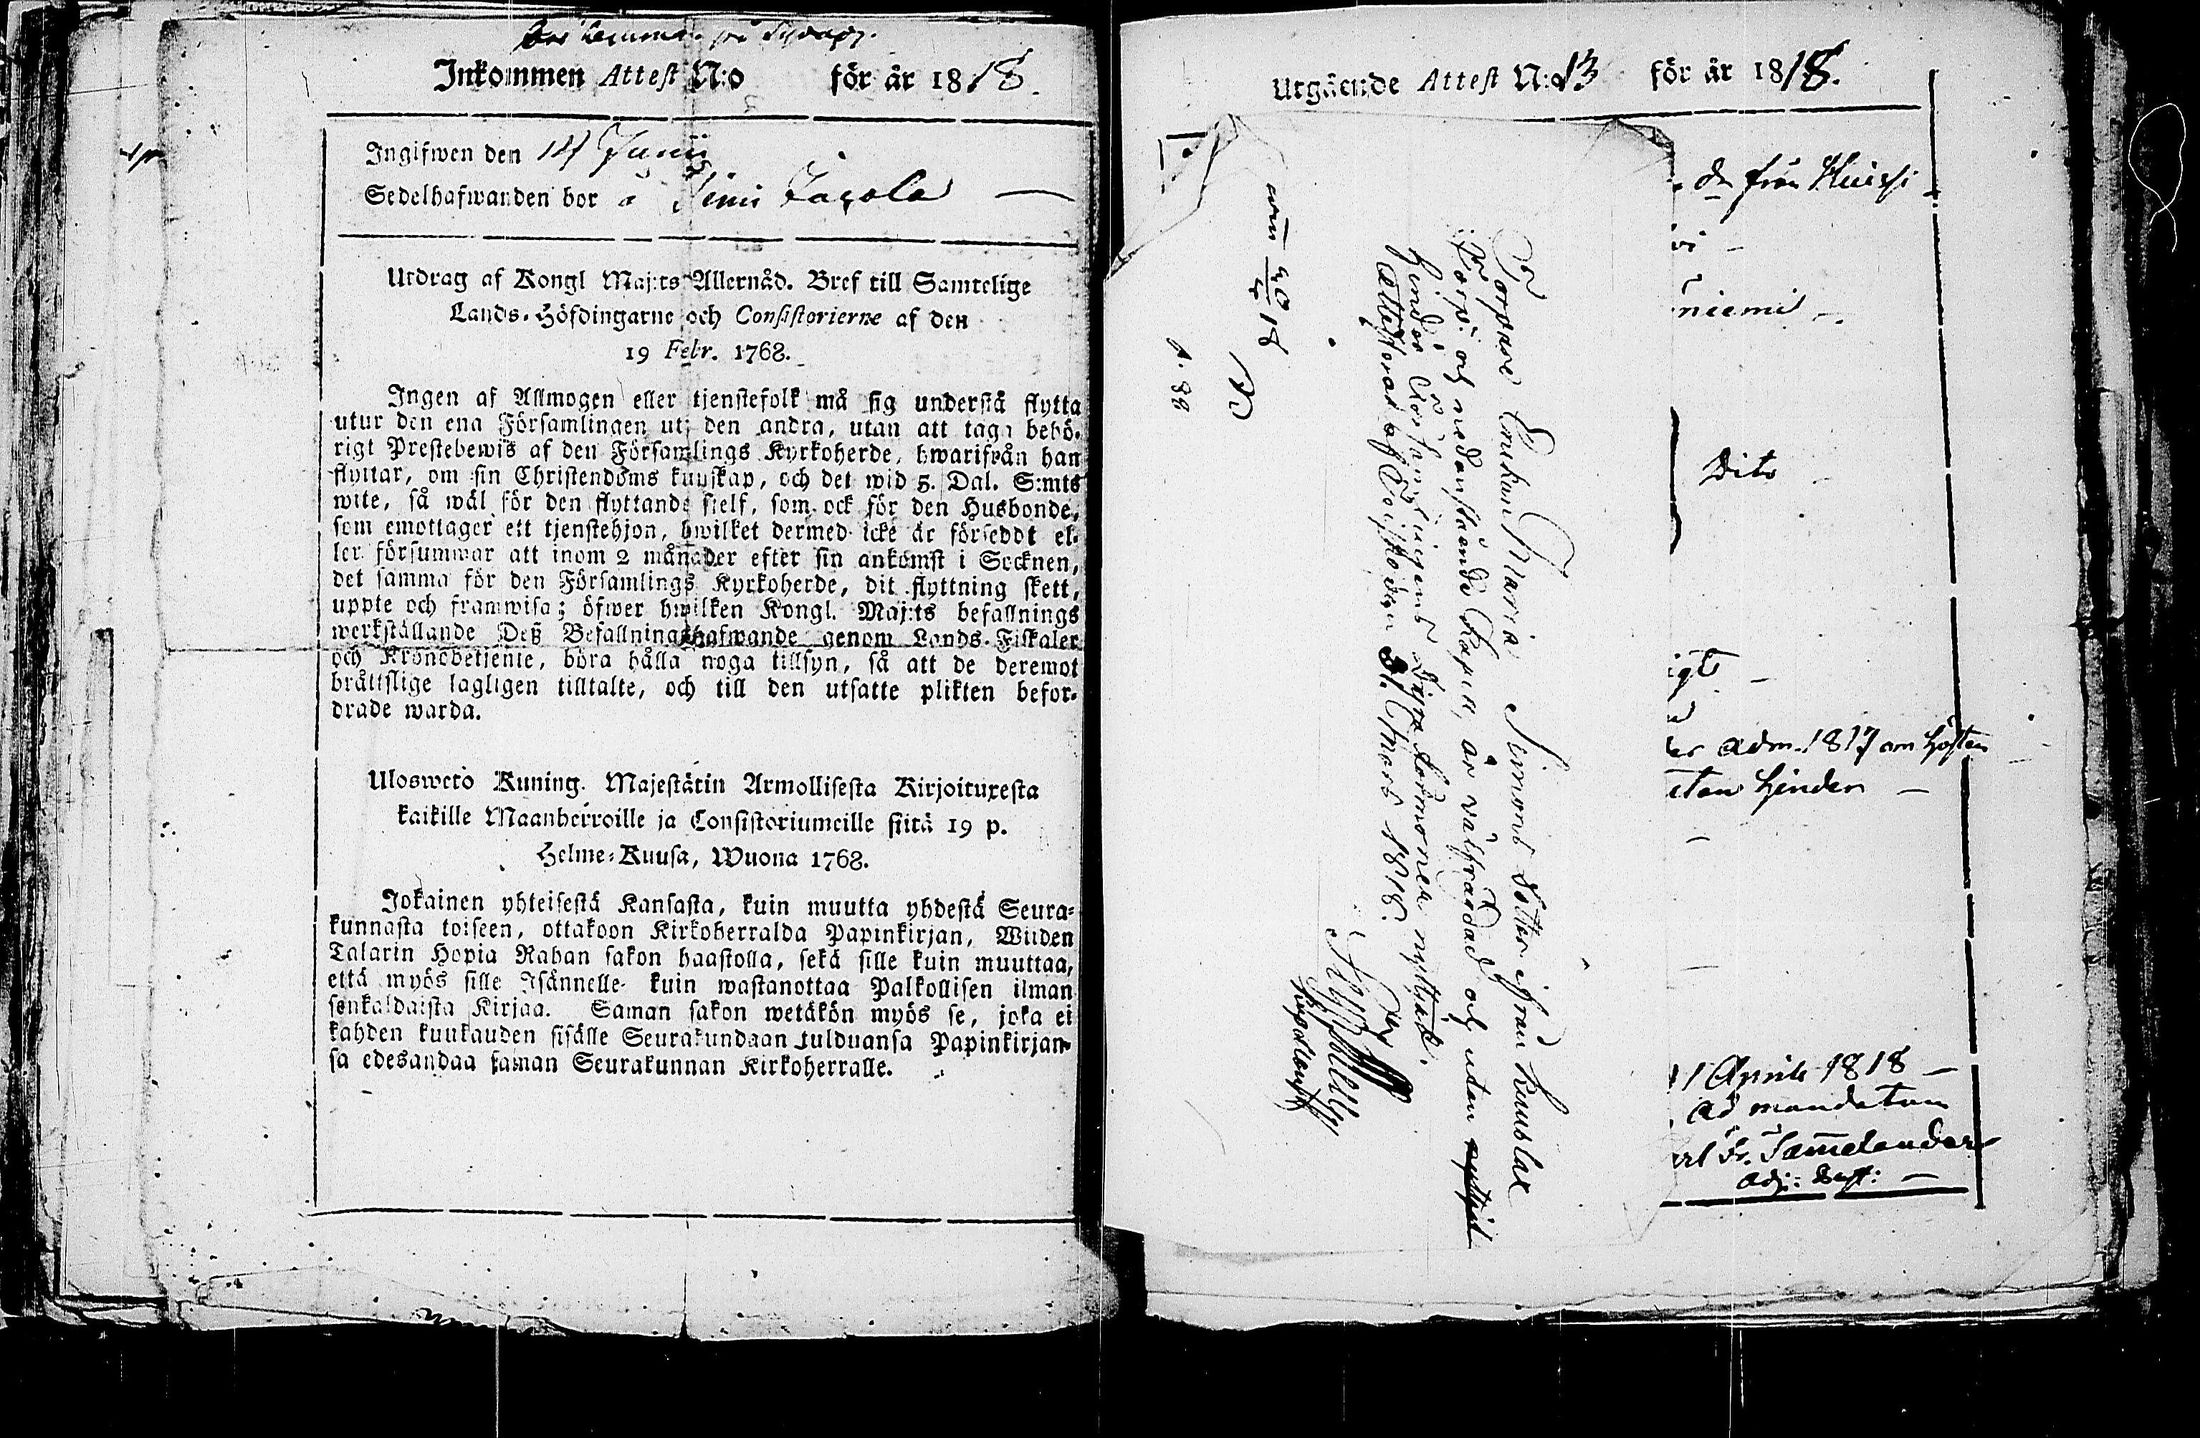 Inkommen Attest N:o för år 1818.
Ingifwen den 14 Junii
Sedelhafwanden bor å Simi Jagola
Utdrag af Kongl Maj:ts Allernåd. Bref till Samtelige
Lands-Höfdingarne och Consistorierne af den
19 Febr. 1768.
Ingen af Allmogen eller tjenstefolk må sig understå flytta
utur den ena Församlingen uti den andra, utan att taga behö-
rigt Prestebewis af den Församlings Kyrkoherde, hwarifrån han
flyttar, om sin Christendoms kunskap, och det wid 5. Dal. S:mts
wite, så wäl för den flyttande sielf, som ock för den Husbonde,
som emottager ett tjenstehjon, hwilket dermed icke är förseddt el-
ler försummar att inom 2 månader efter sin ankomst i Socknen,
det samma för den Församlings Kyrkoherde, dit flyttning skett,
uppte och framwisa; öfwer hwilken Kongl. Maj:ts befallnings
werkställande Deß Befallningshafwande genom Lands-Fiskaler
och Kronobetjente, böra hålla noga tillsyn, så att de deremot
bråttslige lagligen tilltalte, och till den utsatte plikten befor-
drade warda.
Ulosweto Kuning. Majestätin Armollisesta Kirjoituxesta
kaikille Maanherroille ja Consistoriumeille siitä 19 p.
Helme-Kuusa, Wuona 1768.
Jokainen yhteisestä Kansasta, kuin muutta yhdestä Seura-
kunnasta toiseen, ottakoon Kirkoherralda Papinkirjan, Wiiden
Talarin Hopia Rahan sakon haastolla, sekä sille kuin muuttaa,
että myös sille Isännelle kuin wastanottaa Palkollisen ilman
senkaldaista Kirjaa. Saman sakon wetäkön myös se, joka ei
kahden kuukauden sisälle Seurakundaan tulduansa Papinkirjan-
sa edesandaa saman Seurakunnan Kirkoherralle.
Utgående Attest N:o 13 för år 1818.
Torpare Enkan Maria Simons dotter ifrån Kauslax
Torp och nedanstående Kapell, är välfrägdad och utan
hinder Församlingens Dyra förmoner nyttjat.
Attesteras af Toisko den 31 Mart 1818.
p. 88
från
niemi
Dito
igt
adm. 1817 om hösten
utan hinder
1 Aprile 1818
ad mandatum
Fr. Samelander
Adj: